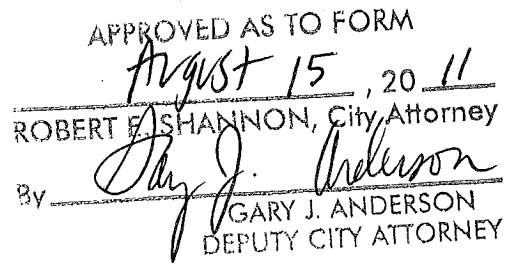 APPROVED AS TO FORM
August 15, 20 11
ROBERT E. SHANNON, City Attorney
By Gary J. Anderson
GARY J. ANDERSON
DEPUTY CITY ATTORNEY